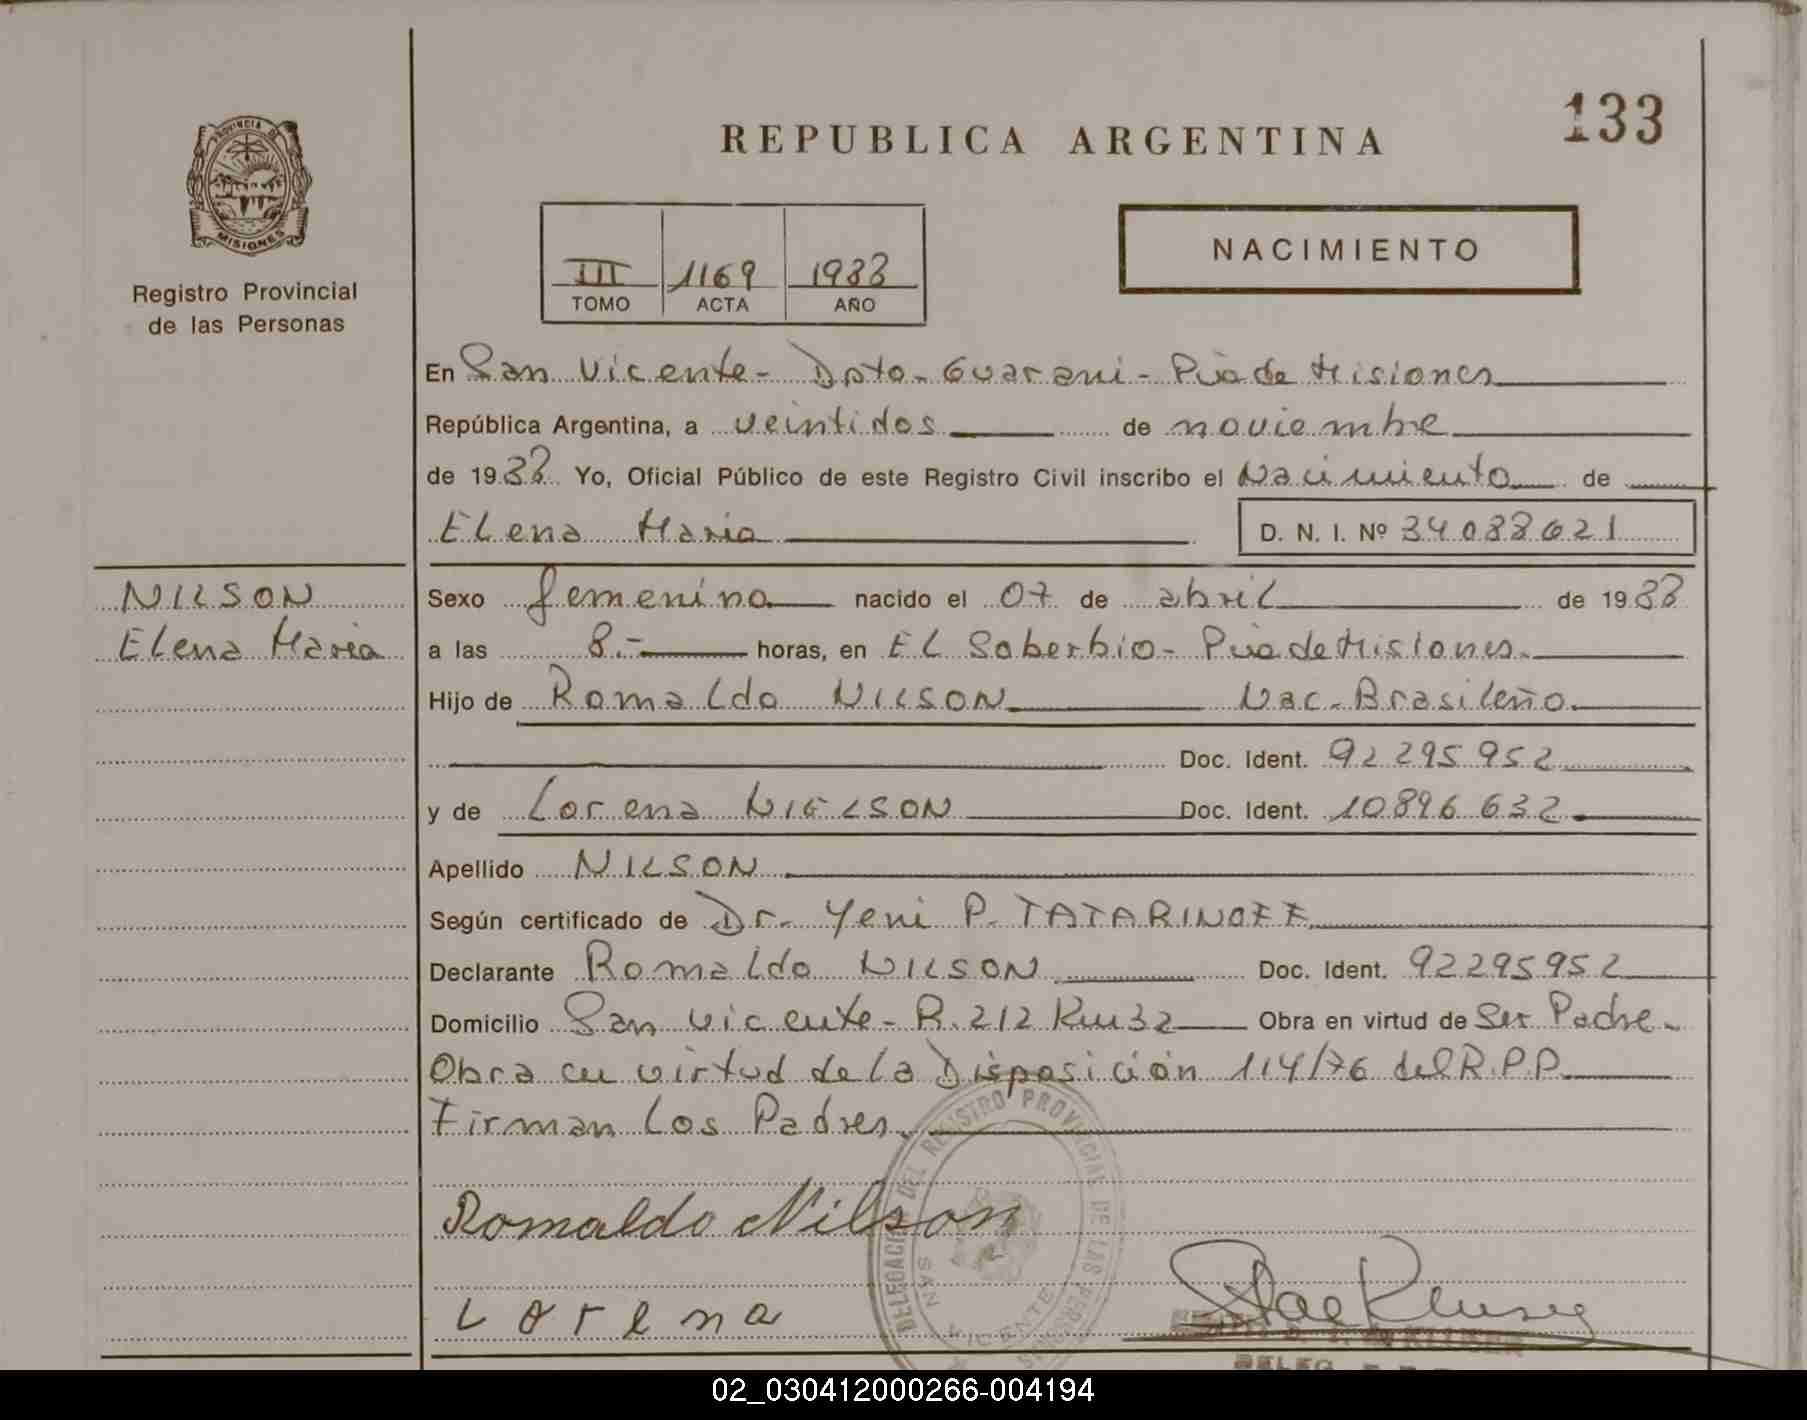 133
REPUBLICA ARGENTINA
PROVINCIA DE
MISIONES
Registro Provincial
de las Personas
NACIMIENTO
III 1169 1988
TOMO ACTA AÑO
En San Vicente - Dpto. Guarani - Pcia de Misiones
República Argentina, a veintidos de noviembre
de 1988 Yo, Oficial Público de este Registro Civil inscribo el Nacimiento de
Elena Maria D. N. I. Nº 34088621
NILSON
Elena Maria
Sexo femenino nacido el 07 de abril de 1988
a las 8.- horas, en El Soberbio - Pcia de Misiones.
Hijo de Romaldo NILSON Nac. Brasileño.
Doc. Ident. 92 295 952
y de Lorena NIELSON Doc. Ident. 10896 632
Apellido NILSON
Según certificado de Dr. Yeni P. TATARINOFF
Declarante Romaldo NILSON Doc. Ident. 92295952
Domicilio San Vicente - R. 212 Km 32 Obra en virtud de Ser Padre.
Obra en virtud de la Disposición 114/76 del R.P.P.
Firman Los Padres.
DELEGACION DEL REGISTRO PROVINCIAL DE LAS PERSONAS
SAN VICENTE
Romaldo Nilson
Lorena
DELEG.
02_030412000266-004194